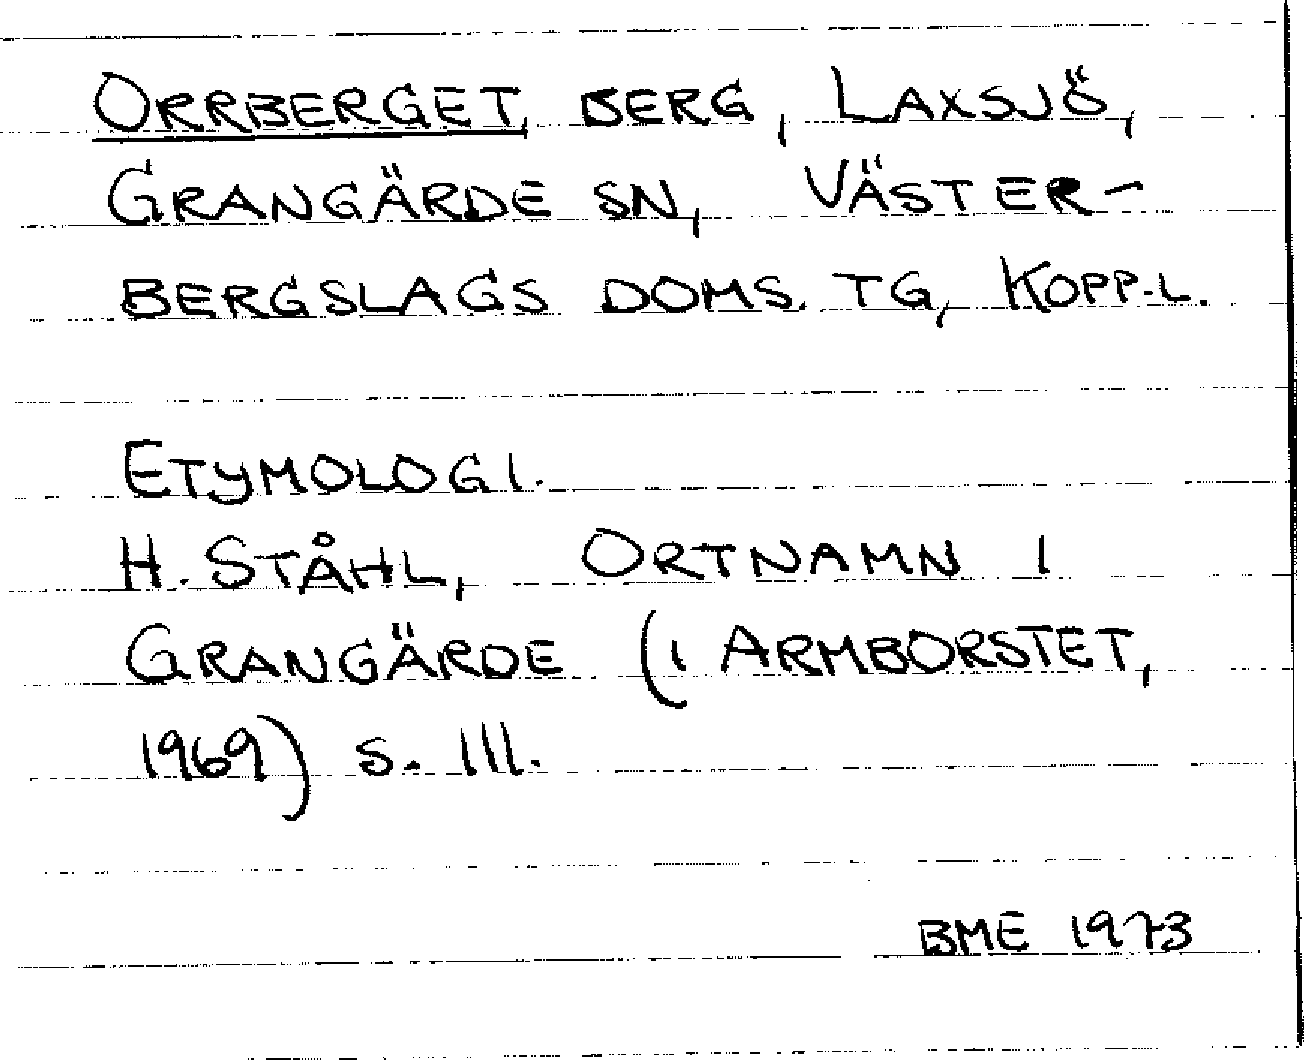 ORRBERGET, BERG, LAXSJÖ,
GRANGÄRDE SN, VÄSTER-
BERGSLAGS DOMS. TG, KOPP.L.
ETYMOLOGI.
H. STÅHL, ORTNAMN I
GRANGÄRDE (I ARMBORSTET,
1969) S. 111.
BME 1973